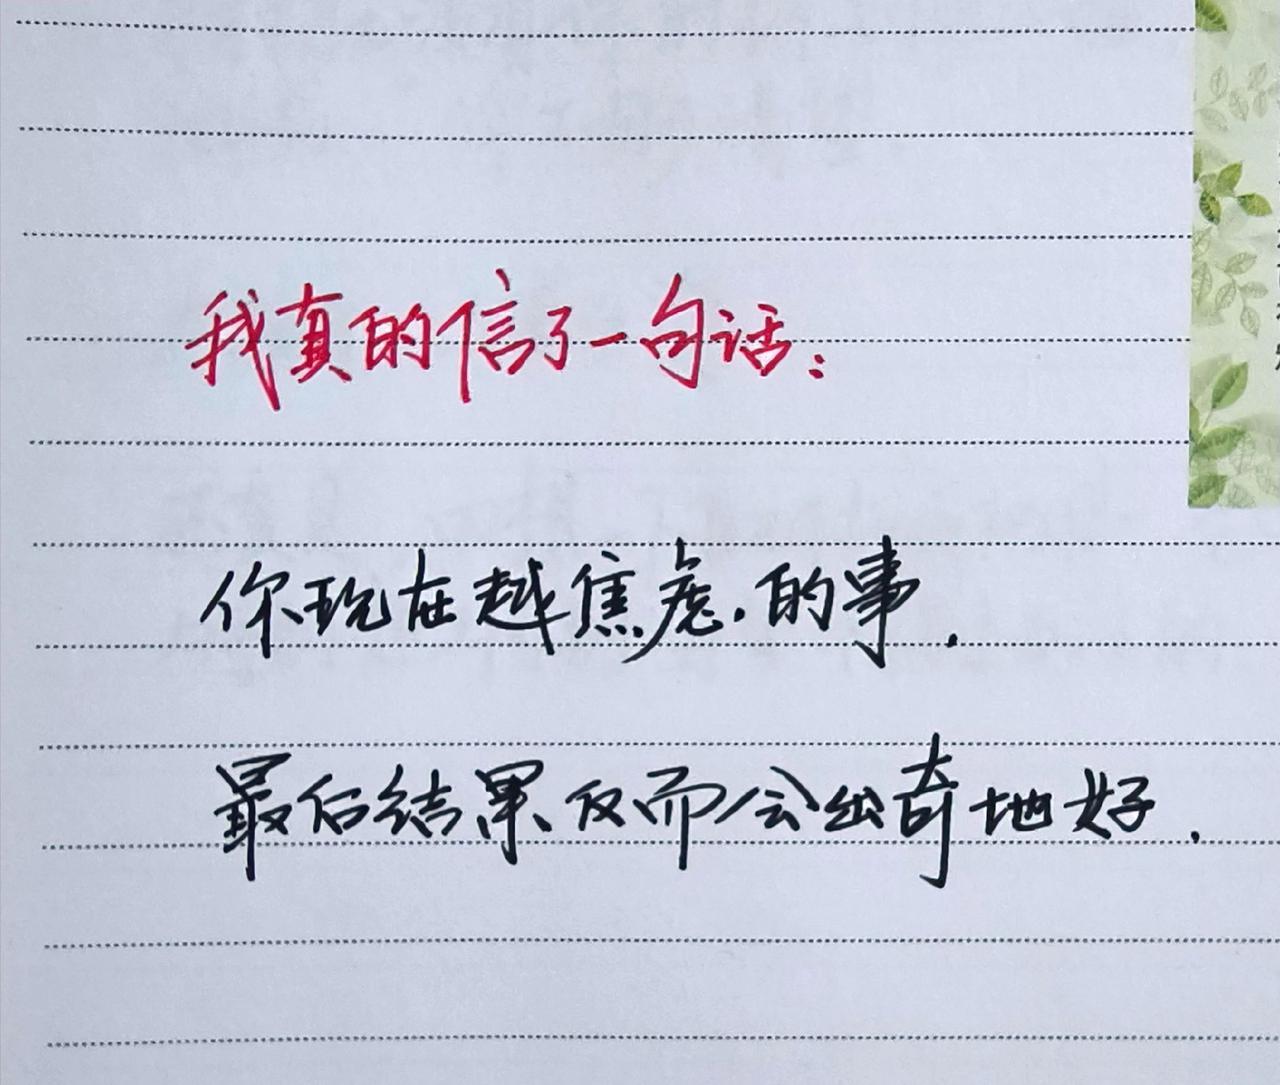 我真的信了一句话：
你现在越焦虑的事.
最后结果反而会出奇地好.